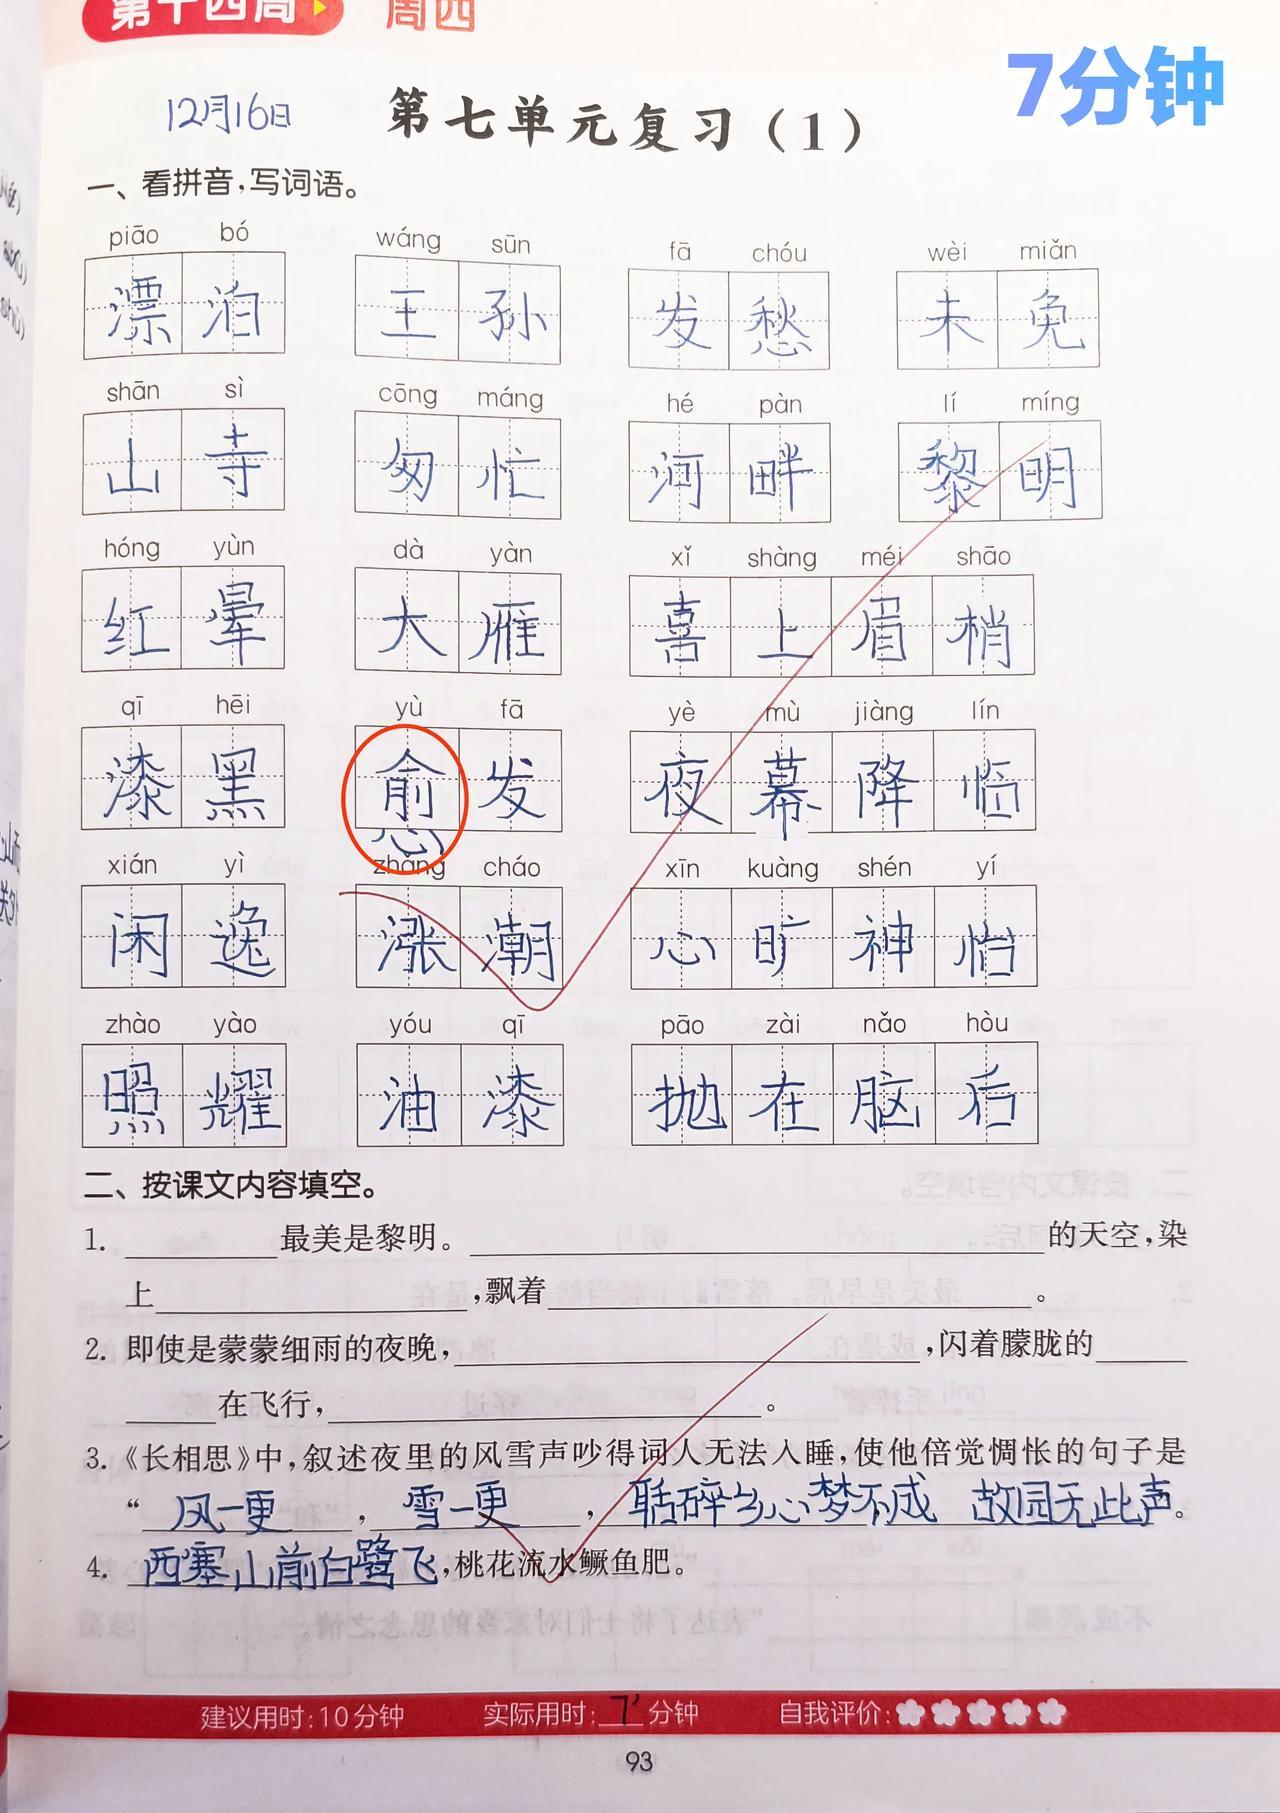 第十四周 周四
7分钟
12月16日 第七单元复习(1)
一、看拼音,写词语。
piāo bó wáng sūn fā chóu wèi miǎn
漂泊 王孙 发愁 未免
shān sì cōng máng hé pàn lí míng
山寺 匆忙 河畔 黎明
hóng yùn dà yàn xǐ shàng méi shāo
红晕 大雁 喜上眉梢
qī hēi yù fā yè mù jiàng lín
漆黑 愈发 夜幕降临
xián yì zhǎng cháo xīn kuàng shén yí
闲逸 涨潮 心旷神怡
zhào yào yóu qī pāo zài nǎo hòu
照耀 油漆 抛在脑后
二、按课文内容填空。
1. 最美是黎明。 的天空,染
上 ,飘着 。
2. 即使是蒙蒙细雨的夜晚, ,闪着朦胧的
在飞行, 。
3.《长相思》中,叙述夜里的风雪声吵得词人无法入睡,使他倍觉惆怅的句子是
“风一更,雪一更,聒碎乡心梦不成 故园无此声。
4. 西塞山前白鹭飞,桃花流水鳜鱼肥。
建议用时:10分钟 实际用时:7分钟 自我评价:
93